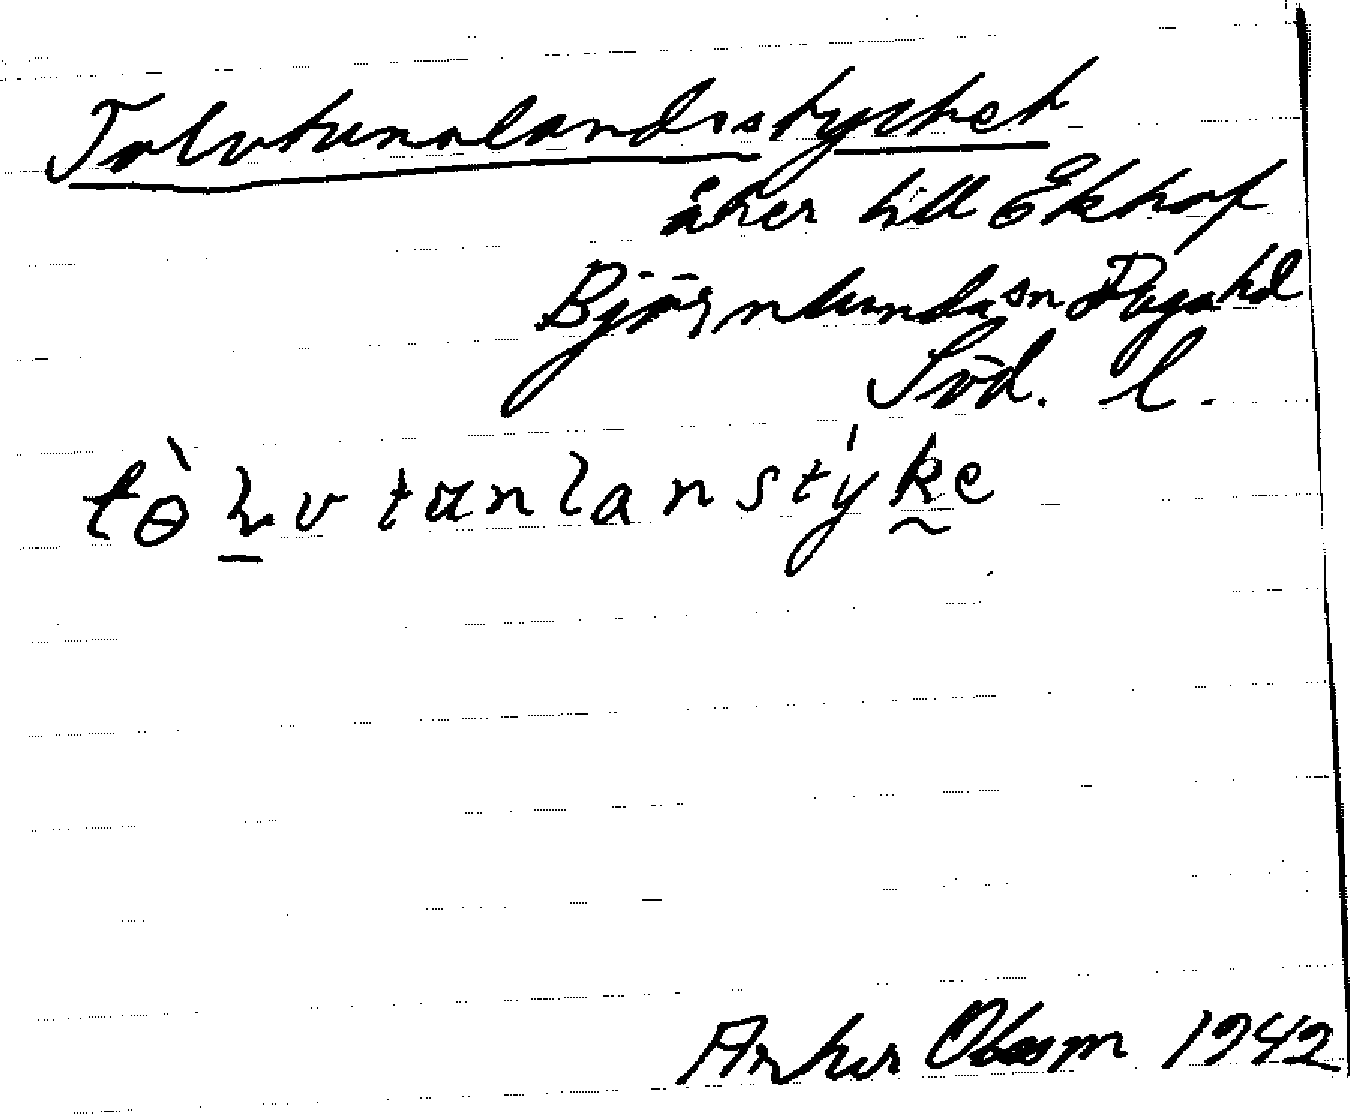 Tolvtunnlandsstycket
åker till Ekhof
Björnlunda sn Daga hd
Söd. l.
tȯ̀ɭv tunlanstýke
1942